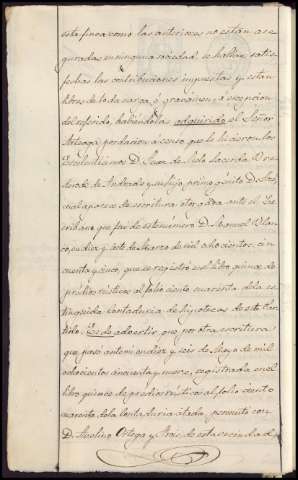 esta finca como las anteriores no están ase
guradas en ninguna sociedad, se hallan satis
fechas las contribuciones impuestas y están
libres de toda carga, ó gravamen, á excepcion
del referido, habiéndolas adquirido el Señor
Arteaga por dacion a censo que le hicieron los
Excelentísimos D. Juan de
de Andrade y su hijo primogénito D.
por escritura otorgada ante el Es
cribano que fué de este número D. Manuel Blan
co, en diez y siete de Marzo de mil ochocientos cin
cuenta y cinco, que se registró en el libro quince de
prédios rústicos al folio ciento cuarenta de la es
tinguida Contaduria de hipotecas de este Par
tido. Es de advertir que por otra escritura
que pasó ante mí en diez y seis de Mayo de mil
ochocientos cincuenta y nueve, registrada en el
libro quince de predios rústicos al folio ciento
cuarenta de la Contaduria citada, permutó con
D. Avelino Ortega y de esta vecindad